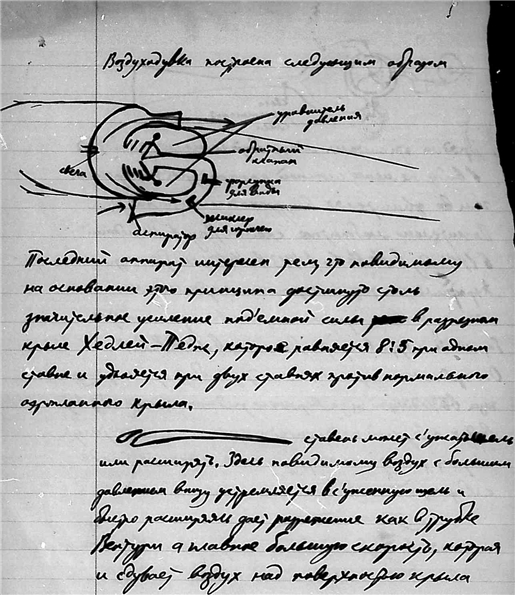 Воздуходувка построена следующим образом
уравнитель
давления
обратный
клапан
форсунка
для воды
свеча
жиклер
для горючего
аспиратор
Последний аппарат интересен тем, что повидимому
на основании этого принципа достигнуто столь
значительное усиление под'емной силы в разрезном
крыле Хедлей-Педж, которое равняется 8:5 при одном
ставне и удвояется при двух ставнях против нормального
аэропланного крыла.
ставень может с'уживать щель
или расширять. Здесь повидимому воздух с большим
давлением внизу устремляется в с'уженную щель и
быстро расширяясь дает разрежение как в трубке
Вентури а главное большую скорость, которая
и сдувает воздух над поверхностью крыла